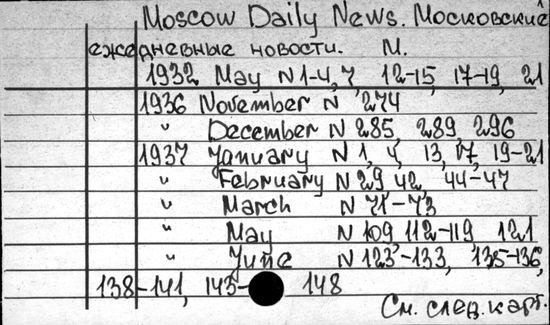 Moscow Daily News. Московские
ежедневные новости. М.
1932 May N 1-4, 7, 12-15, 17-19, 21
1936 November N 274
" December N 285, 289, 296
1937 January N 1, 4, 13, 17, 19-21
" February N 29, 42, 44-47
" March N 71-73
" May N 109, 112-119, 121
" June N 123-133, 135-136,
138-141, 143- 148
См. след. карт.